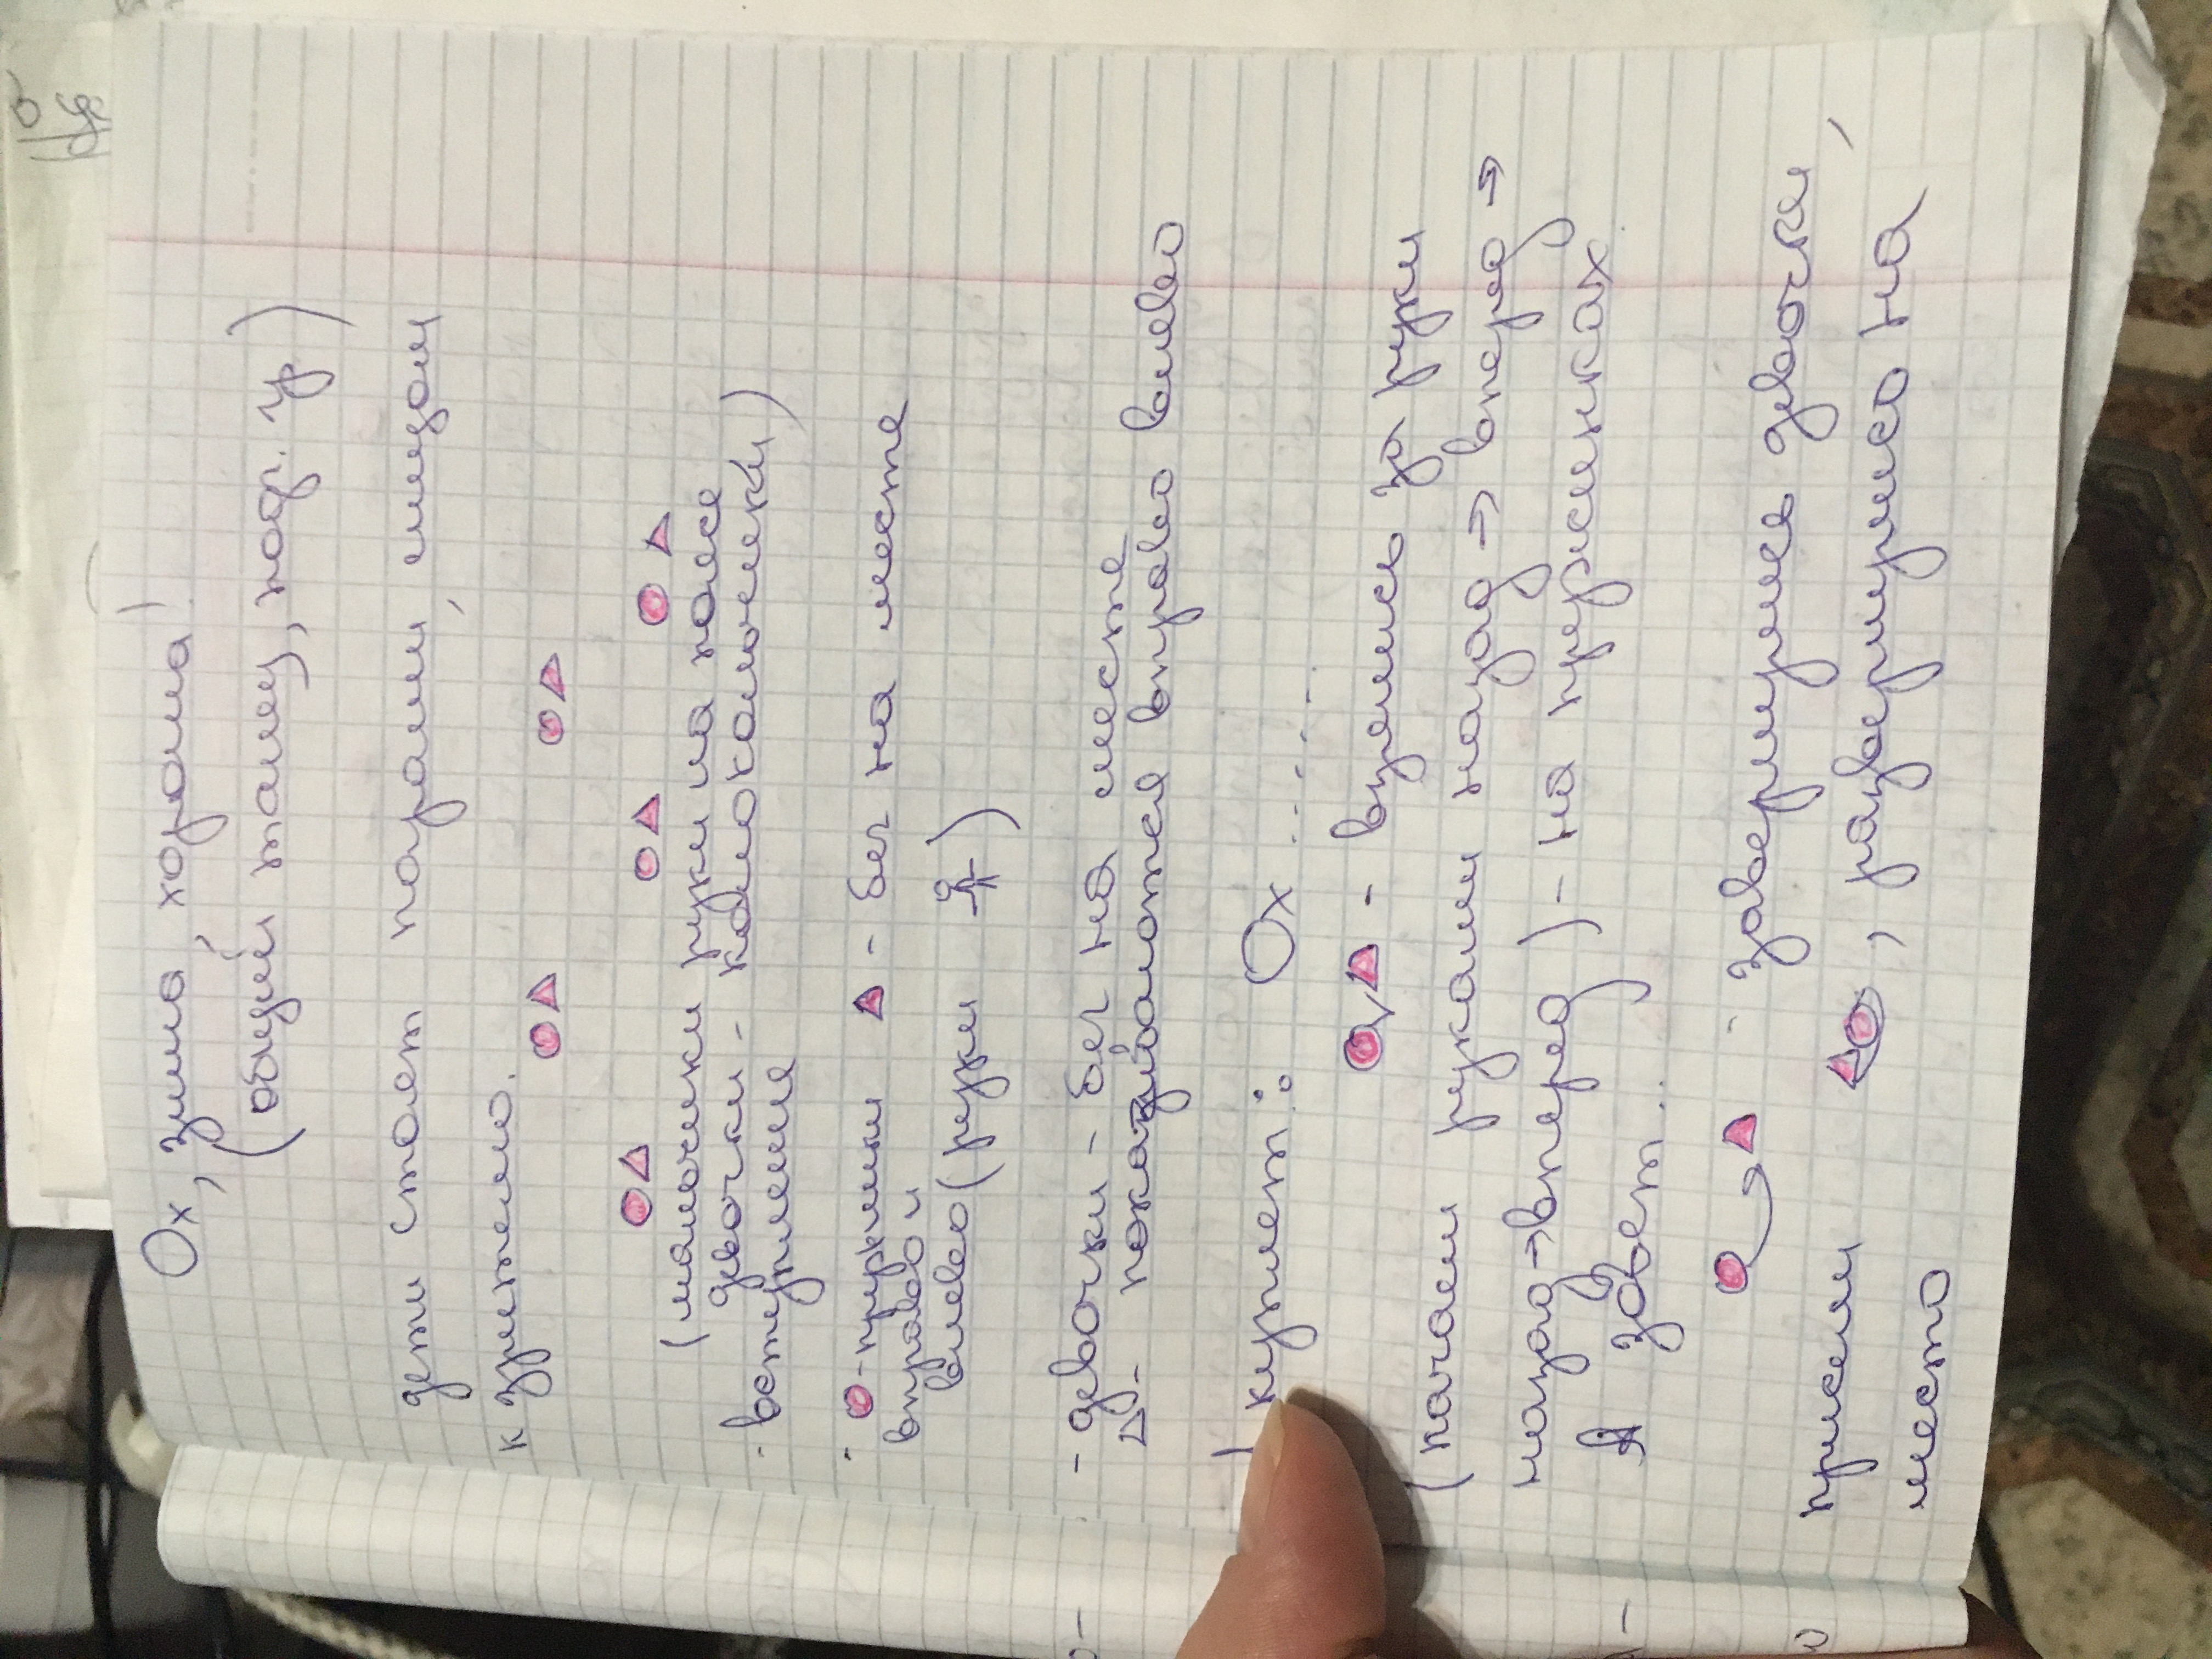 Ох, зима, хороша!
(общий танец, подг. гр)
дети стоят парами, лицом
к зрителю.
(мальчики руки на поясе,
девочки - колокольчики)
- вступление
- пружинки - бег на месте
вправо и
влево (руки )
- девочки - бег на месте
- показываются вправо влево
1 куплет: Ох ......
- взялись за руки
(качаем руками назад → вперед →
назад → вперед) - на пружинках.
А зовет..
- завернулись девочки,
присели , развернулись на
место